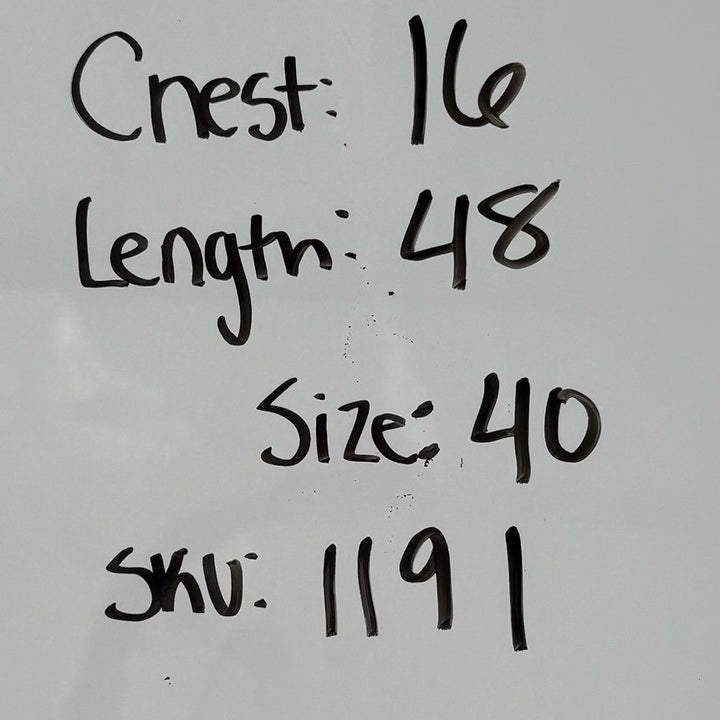 Chest: 16
Length: 48
Size: 40
SKU: 1191